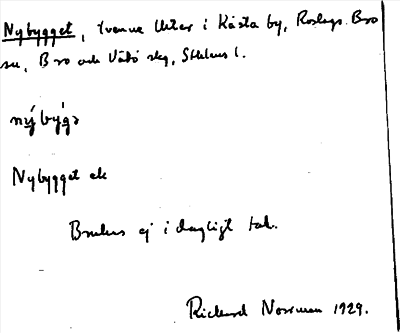 Nybygget, tvenne lktar i Kåsta by, Roslags-Bro
sn, Bro och Vätö skg, Sthlms l.
nýbýgə
Nybygget ek
Brukas ej i dagligt tal.
Rickard Norrman 1929.